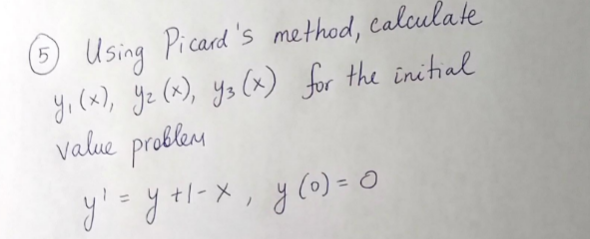 ⑤ Using Picard's method, calculate
y₁(x), y₂(x), y₃(x) for the initial
value problem
y' = y +1-x, y(0)=0